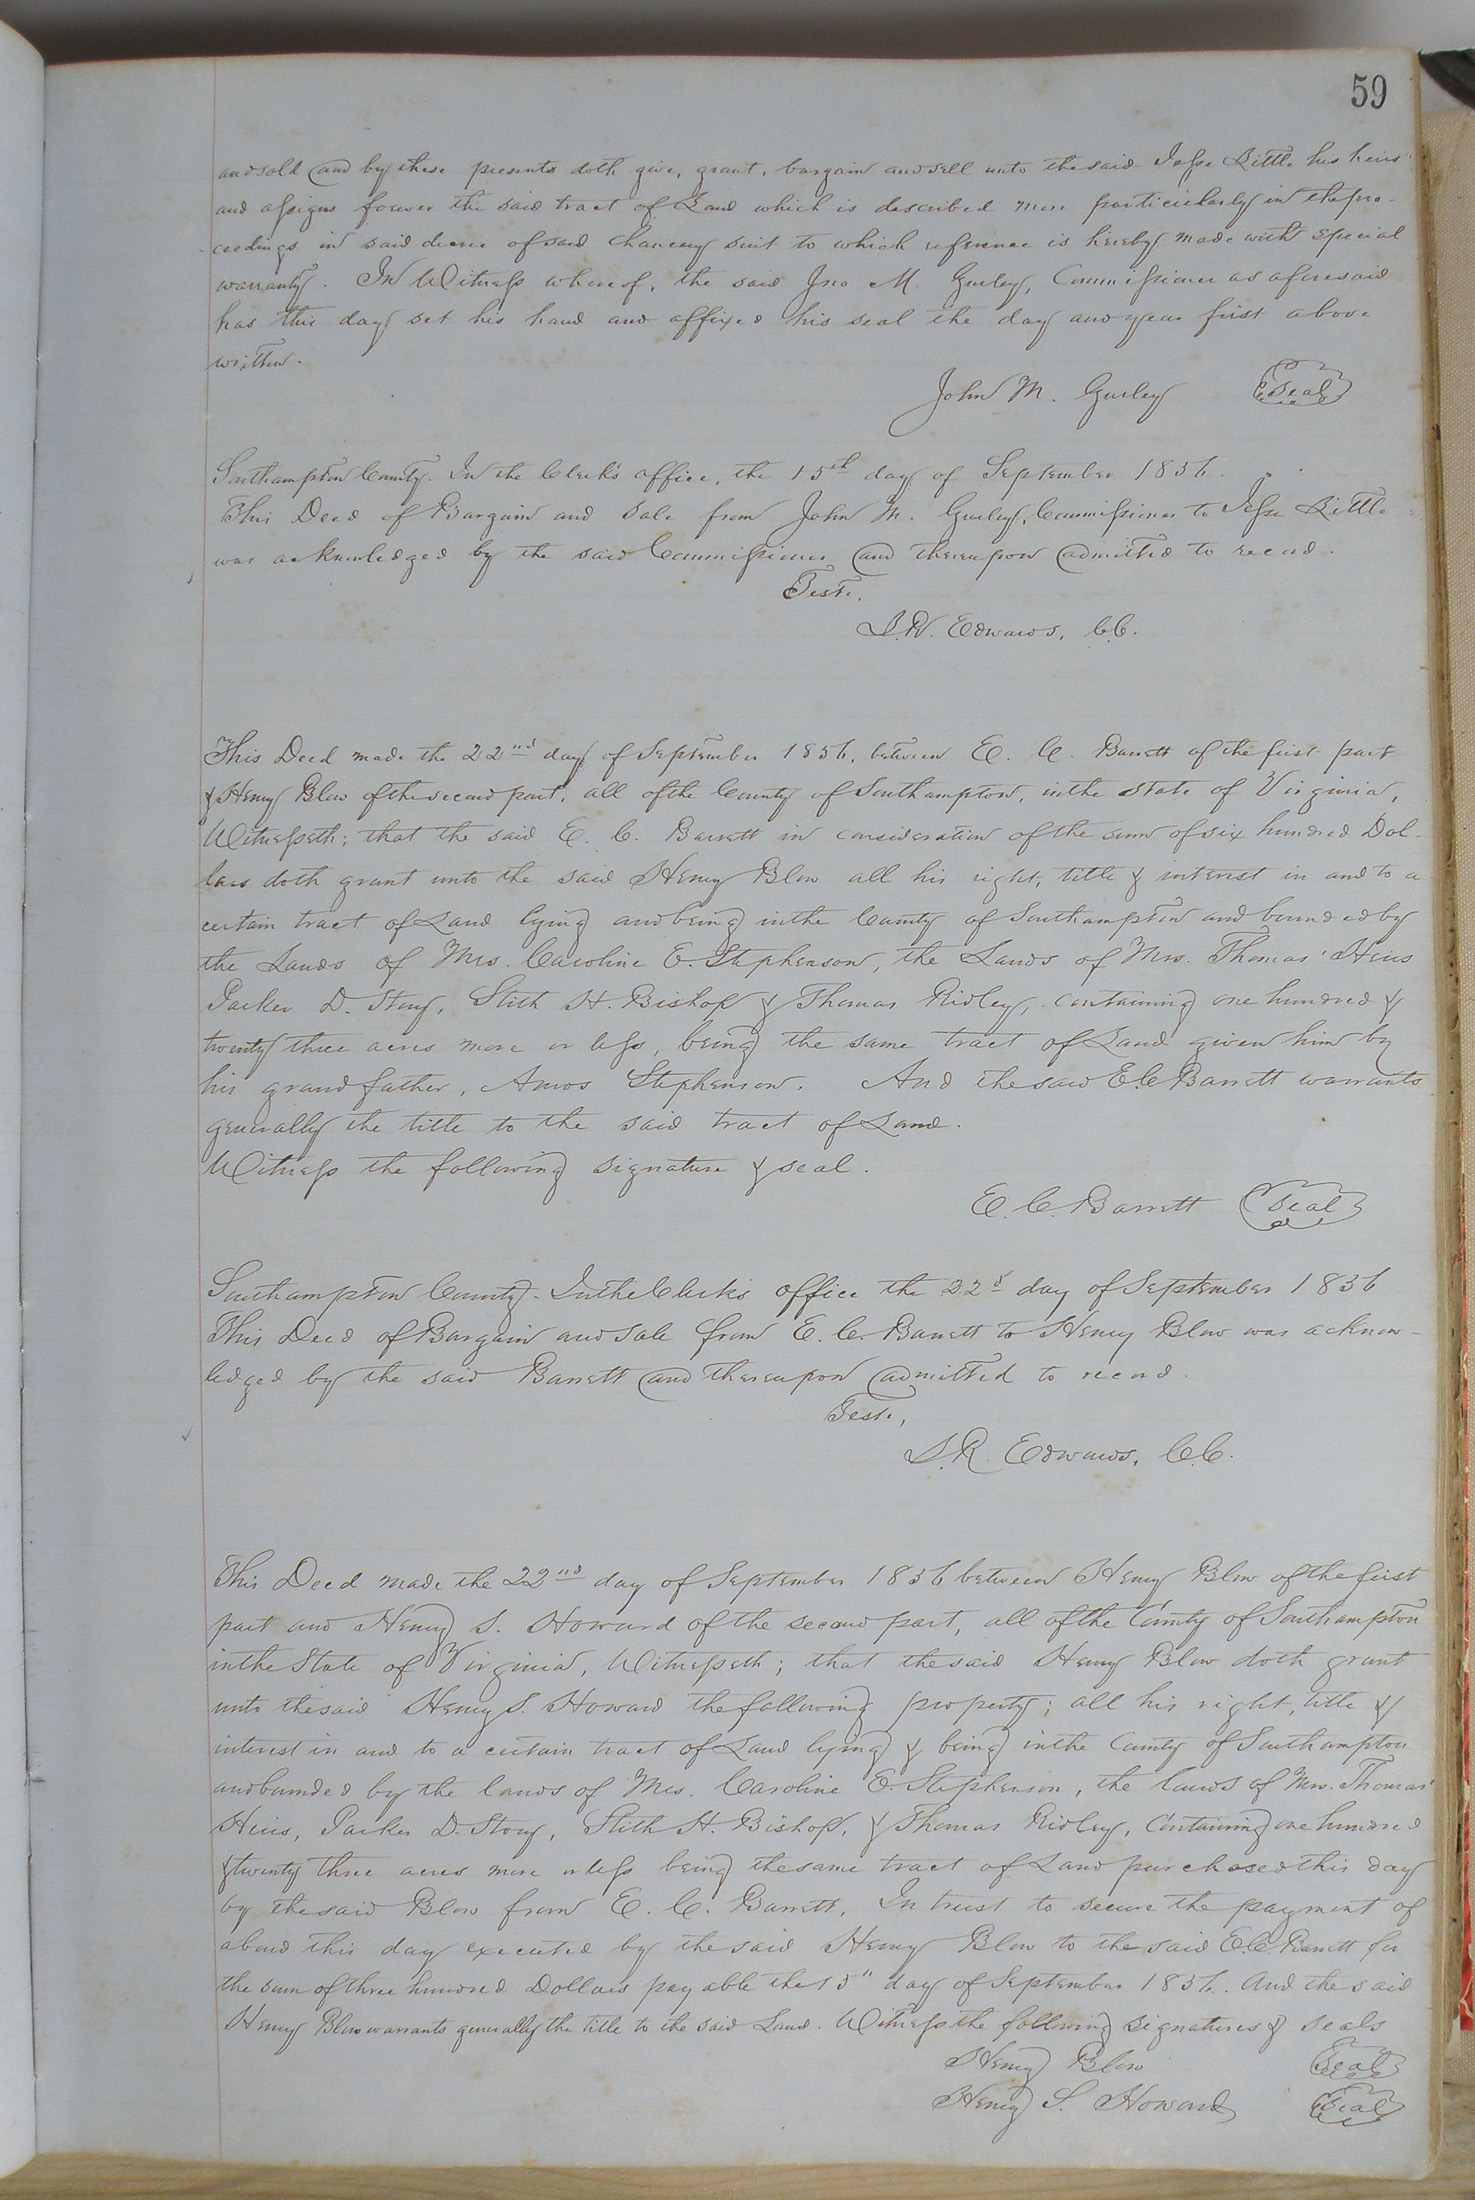 59
and sold and by these presents doth give, grant, bargain and sell unto the said Jesse Little his heirs
and assigns forever the said tract of Land which is described more particularly in the pro-
ceedings in said decree of said Chancery suit to which reference is hereby made with special
warranty. In Witness whereof, the said Jno M. Gurley, Commissioner as aforesaid
has this day set his hand and affixed his seal the day and year first above
written.
John M. Gurley Seal
Southampton County. In the Clerk's office, the 15th day of September 1856.
This Deed of Bargain and Sale from John M. Gurley, Commissioner to Jesse Little
was acknowledged by the said Commissioner and thereupon admitted to record.
Teste,
L. R. Edwards, C.C.
This Deed made the 22nd day of September 1856, between E. C. Barrett of the first part
& Henry Blow of the second part, all of the County of Southampton, in the State of Virginia,
Witnesseth; that the said E. C. Barrett in consideration of the sum of six hundred Dol-
lars doth grant unto the said Henry Blow all his right, title & interest in and to a
certain tract of Land lying and being in the County of Southampton and bounded by
the Lands of Mrs. Caroline E. Stephenson, the Lands of Mrs. Thomas' Heirs
Parker D. Story, Stith H. Bishop & Thomas Ridley, containing one hundred &
twenty three acres more or less, being the same tract of Land given him by
his grandfather, Amos Stephenson. And the said E. C. Barrett warrants
generally the title to the said tract of Land.
Witness the following signature & seal.
E. C. Barrett Seal
Southampton County. In the Clerk's office the 22d day of September 1856
This Deed of Bargain and Sale from E. C. Barrett to Henry Blow was acknow-
ledged by the said Barrett and thereupon admitted to record.
Teste,
L. R. Edwards, C.C.
This Deed made the 22nd day of September 1856 between Henry Blow of the first
part and Henry S. Howard of the second part, all of the County of Southampton
in the State of Virginia, Witnesseth; that the said Henry Blow doth grant
unto the said Henry S. Howard the following property; all his right, title &
interest in and to a certain tract of Land lying & being in the County of Southampton
and bounded by the lands of Mrs. Caroline E. Stephenson, the lands of Mrs. Thomas'
Heirs, Parker D. Story, Stith H. Bishop, & Thomas Ridley, Containing one hundred
& twenty three acres more or less being the same tract of Land purchased this day
by the said Blow from E. C. Barrett, In trust to secure the payment of
a bond this day executed by the said Henry Blow to the said E. C. Barrett for
the sum of three hundred Dollars payable the 15" day of September 1856. And the said
Henry Blow warrants generally the title to the said Land. Witness the following signatures & seals
Henry Blow Seal
Henry S. Howard Seal